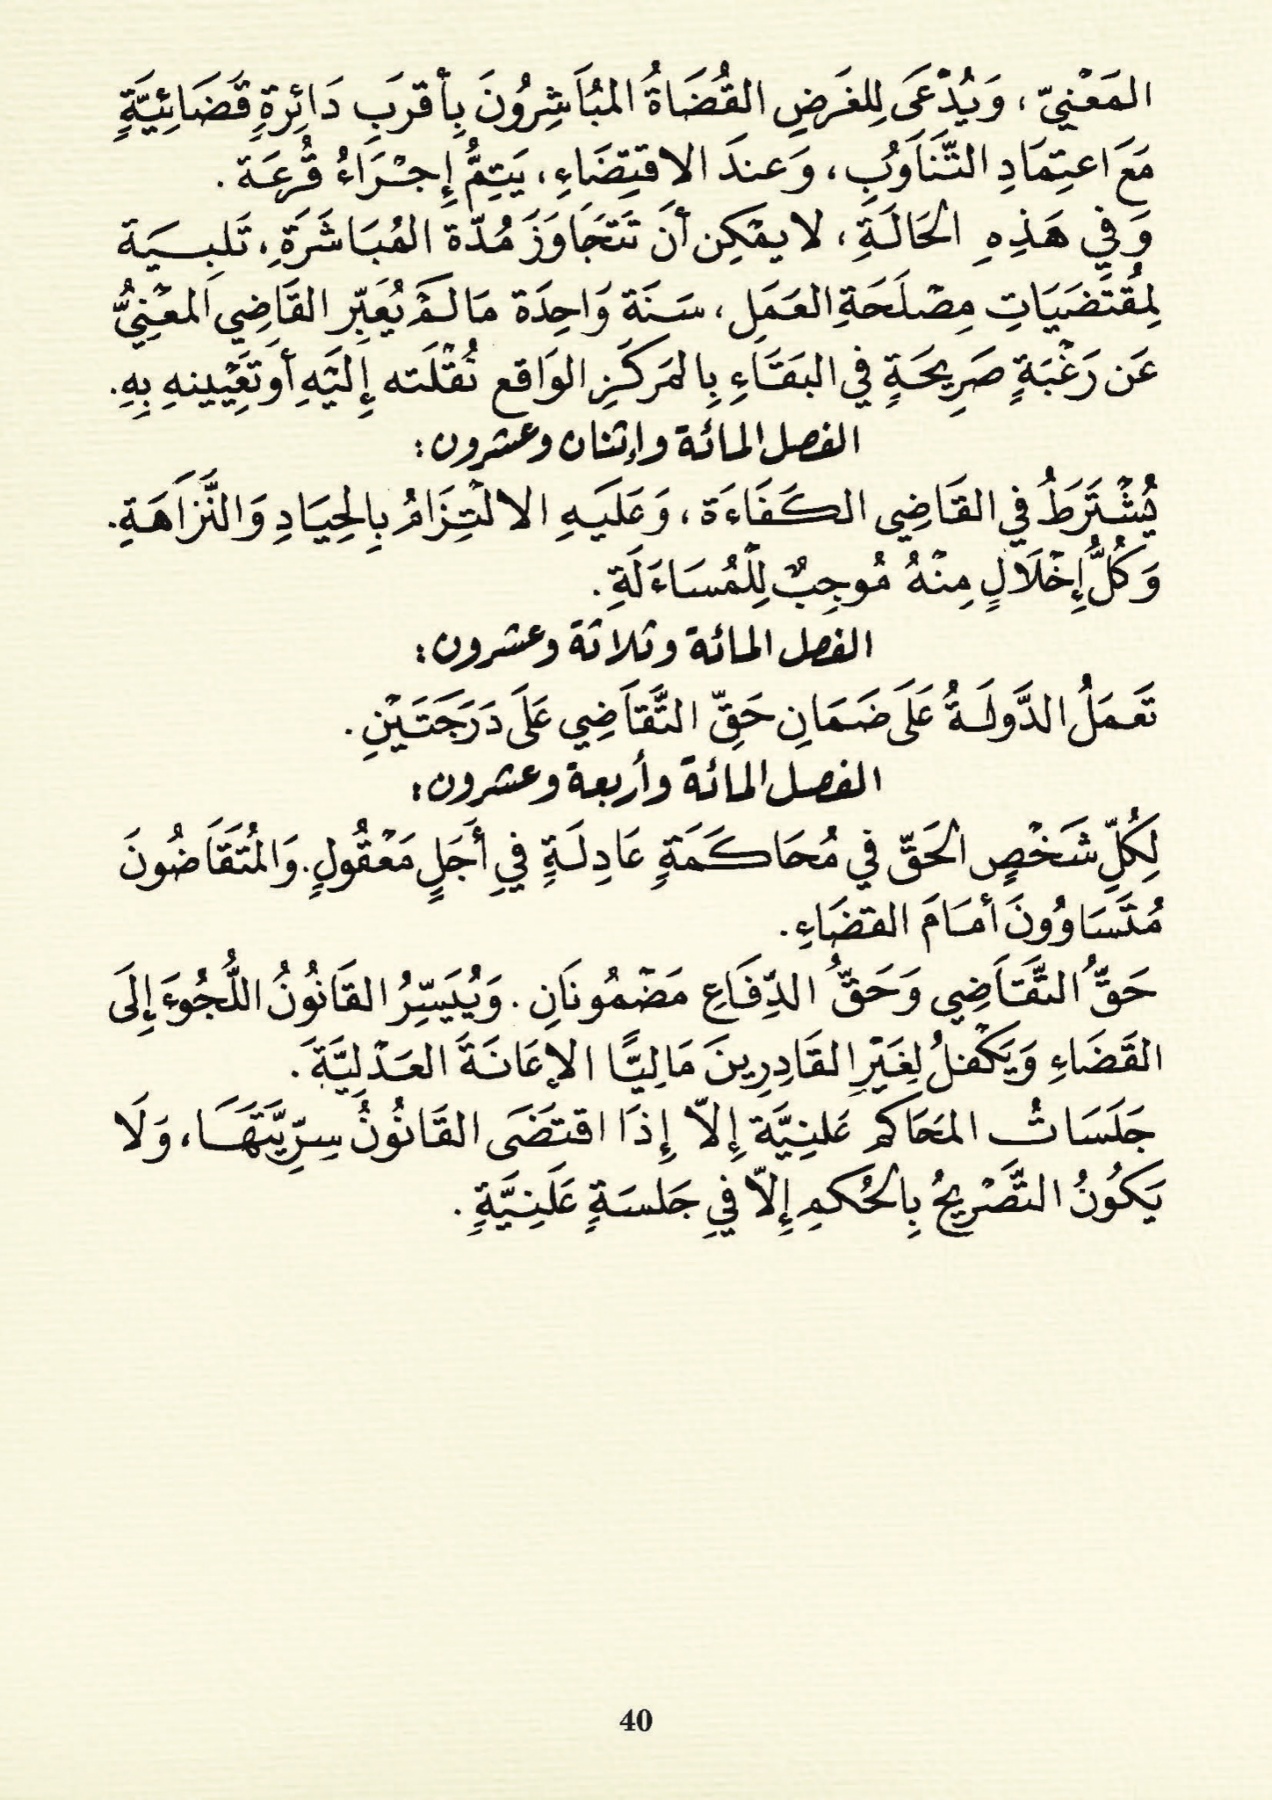 المَعْنِيّ، وَيُدْعَى لِلغَرَضِ القُضَاةُ المُبَاشِرُونَ بِأَقرَبِ دَائِرَةٍ قَضَائِيَّةٍ
مَعَ اعتِمَادِ التَّنَاوُبِ، وَعندَ الاقتِضَاءِ، يَتِمُّ إِجْرَاءُ قُرعَة.
وَفِي هَذِهِ الحَالَةِ، لا يمْكِن أَن تَتَجَاوَزَ مُدّة المُبَاشَرَةِ، تَلبِيَة
لِمُقتَضَيَاتِ مِصْلَحَةِ العَمَلِ، سَنَة وَاحِدَة مَا لَمْ يُعَبِّر القَاضِي المعْنِيُّ
عَن رَغْبَةٍ صَرِيحَةٍ فِي البَقَاءِ بِالمَركَزِ الوَاقع نُقْلَته إِليَهِ أَو تَعْيِينهِ بِهِ.
الفصل المائة وإثنان وعشرون:
يُشْتَرَطُ فِي القَاضِي الكَفَاءَة، وَعَلَيهِ الالتِزَامُ بِالحِيَادِ وَالنَّزَاهَةِ.
وَكُلُّ إِخْلَالٍ مِنْهُ مُوجِبٌ لِلْمُسَاءَلَةِ.
الفصل المائة وثلاثة وعشرون:
تَعمَلُ الدَّولَةُ عَلَى ضَمَانِ حَقِّ التَّقَاضِي عَلَى دَرَجَتَيْنِ.
الفصل المائة وأربعة وعشرون:
لِكُلِّ شَخْصٍ الحَقّ فِي مُحَاكَمَةٍ عَادِلَةٍ فِي أَجَلٍ مَعْقُولٍ. وَالمُتَقَاضُونَ
مُتَسَاوُونَ أمَامَ القضَاءِ.
حَقُّ التَّقَاضِي وَحَقُّ الدِّفَاعِ مَضْمُونَانِ. وَيُيَسِّرُ القَانُونُ اللُّجُوءَ إِلَى
القَضَاءِ وَيَكْفلُ لِغَيْرِ القَادِرِينَ مَالِيًّا الإعَانَةَ العَدْلِيَّةَ.
جَلَسَاتُ المَحَاكم عَلنِيَّة إِلاّ إِذَا اقتَضَى القَانُونُ سِرِّيَّتَهَا، وَلَا
يَكُونُ التَّصْرِيحُ بِالحُكمِ إِلاّ فِي جَلسَةٍ عَلَنِيَّةٍ.
40